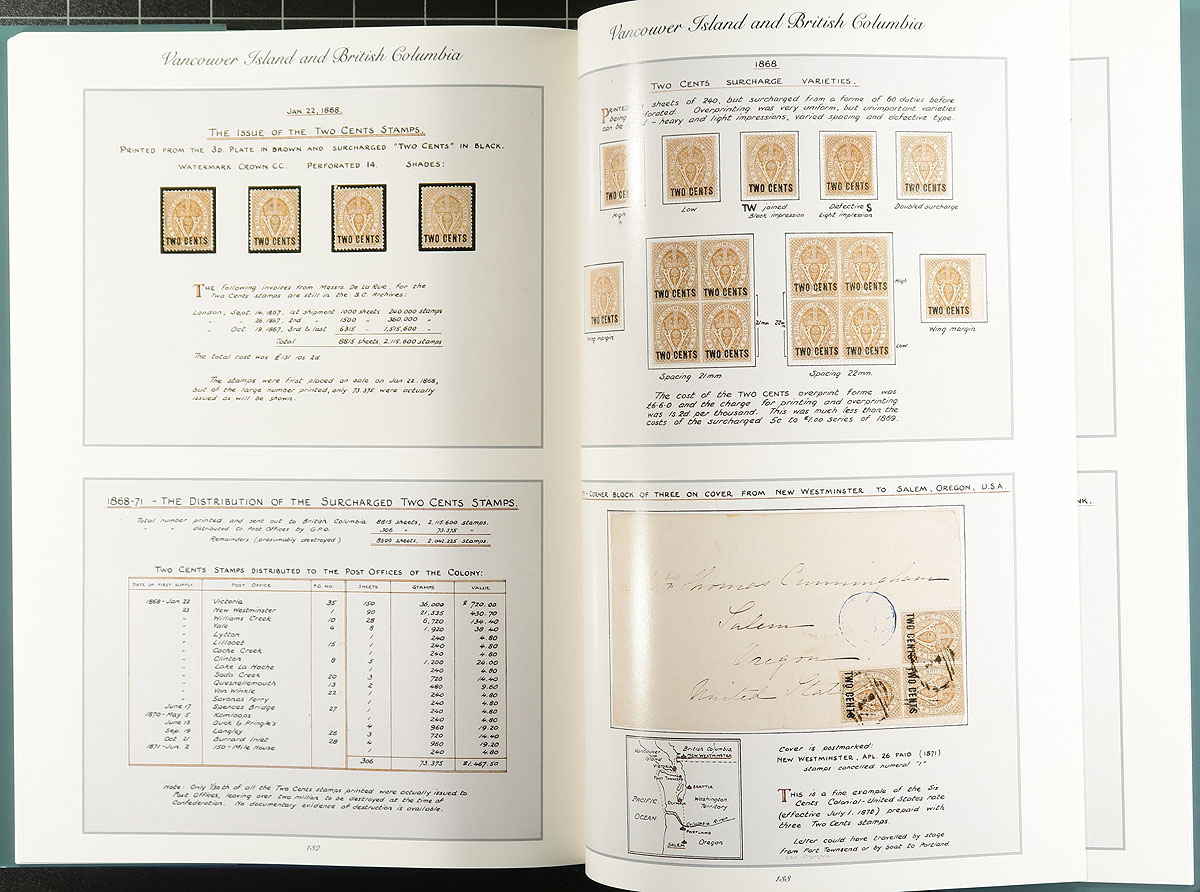 Vancouver Island and British Columbia
JAN 22, 1868.
THE ISSUE OF THE TWO CENTS STAMPS.
PRINTED FROM THE 3D PLATE IN BROWN AND SURCHARGED "TWO CENTS" IN BLACK.
WATERMARK CROWN CC. PERFORATED 14. SHADES:
TWO CENTS TWO CENTS TWO CENTS TWO CENTS
THE following invoices from Messrs. De La Rue, for the
Two Cents stamps are still in the B.C. Archives:
London, Sept. 14, 1867, 1st shipment 1000 sheets 240,000 stamps
" 26, 1867, 2nd " 1500 " 360,000 "
" Oct. 19, 1867, 3rd & last 6315 " 1,515,600 "
Total 8815 sheets, 2,115,600 stamps
The total cost was £131 10s 2d.
The stamps were first placed on sale on Jan 22, 1868,
but of the large number printed, only 73,375 were actually
issued as will be shown.
1868-71 - THE DISTRIBUTION OF THE SURCHARGED TWO CENTS STAMPS.
Total number printed and sent out to British Columbia 8815 sheets, 2,115,600 stamps.
" " distributed to Post Offices by G.P.O. 306 " 73,375 "
Remainders (presumably destroyed) 8509 sheets, 2,042,225 stamps.
TWO CENTS STAMPS DISTRIBUTED TO THE POST OFFICES OF THE COLONY:
DATE OF FIRST SUPPLY. POST OFFICE P.O. NO. SHEETS STAMPS VALUE
1868-Jan. 22 Victoria 35 150 36,000 $720.00
23 New Westminster 1 90 21,535 430.70
" Williams Creek 10 28 6,720 134.40
" Yale 4 8 1,920 38.40
" Lytton 1 240 4.80
" Lillooet 15 1 240 4.80
" Cache Creek 1 240 4.80
" Clinton 8 5 1,200 24.00
" Lake La Hache 1 240 4.80
" Soda Creek 20 3 720 14.40
" Quesnellemouth 13 2 480 9.60
" Van Winkle 22 1 240 4.80
" Savonas Ferry 1 240 4.80
June 17 Spences Bridge 27 1 240 4.80
1870-May 5 Kamloops 1 240 4.80
June 13 Duck & Pringle's 4 960 19.20
Sep. 19 Langley 26 3 720 14.40
Oct. 21 Burrard Inlet 28 4 960 19.20
1871-Jun. 2 150-Mile House 1 240 4.80
306 73,375 $1,467.50
Note: Only 1/30th of all the Two Cents stamps printed were actually issued to
Post Offices, leaving over two million to be destroyed at the time of
Confederation. No documentary evidence of destruction is available.
132
Vancouver Island and British Columbia
1868
TWO CENTS SURCHARGE VARIETIES.
PRINTED sheets of 240, but surcharged from a forme of 60 duties before
being forated. Overprinting was very uniform, but unimportant varieties
can be - heavy and light impressions, varied spacing and defective type.
TWO CE TWO CENTS TWO CENTS TWO CENTS TWO CENTS
High Low TW joined Defective S Doubled surcharge
Black impression Light impression
TWO CENTS TWO CENTS TWO CENTS TWO CENTS High
TWO CENTS 21mm 22m TWO CENTS
TWO CENTS TWO CENTS TWO CENTS TWO CENTS Low
Wing margin Wing margin
Spacing 21mm. Spacing 22mm.
The cost of the TWO CENTS overprint forme was
£6-6-0 and the charge for printing and overprinting
was 1s 2d. per thousand. This was much less than the
costs of the surcharged 5c to $1.00 series of 1869.
- CORNER BLOCK OF THREE ON COVER FROM NEW WESTMINSTER TO SALEM, OREGON, U.S.A.
Thomas Cunningham
Salem
Oregon
United Stat
TWO CENTS TWO CENTS TWO CENTS
Vancouver Island
British Columbia
NEW WESTMINSTER
Victoria
Port Townsend
SEATTLE
Olympia
Washington Territory
PACIFIC OCEAN
Columbia River
PORTLAND
SALEM
Oregon
Cover is postmarked:
NEW WESTMINSTER, APL. 26 PAID (1871)
stamps cancelled numeral "1"
THIS is a fine example of the Six
Cents Colonial-United States rate
(effective July 1, 1870) prepaid with
three Two Cents stamps.
Letter could have travelled by stage
from Port Townsend or by boat to Portland
133
NK.